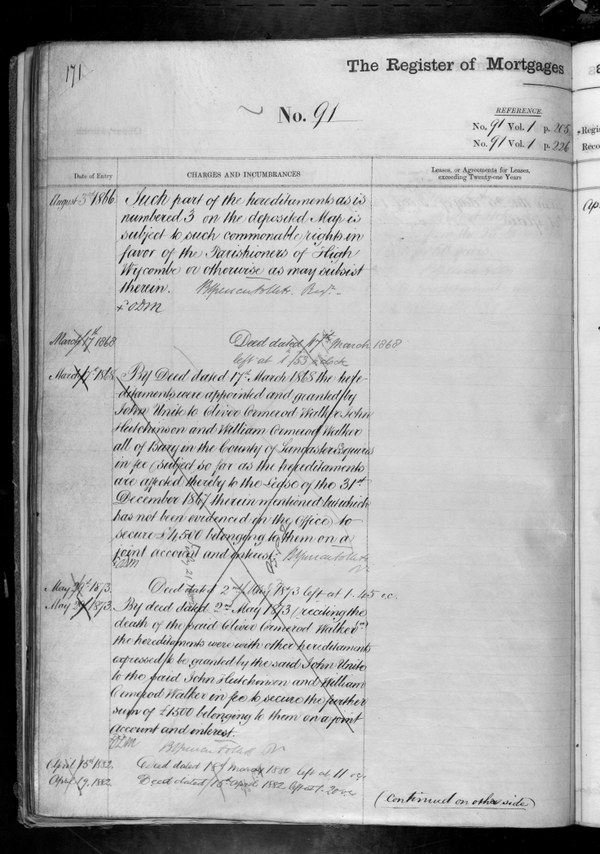 171
The Register of Mortgages
No. 91
REFERENCE.
No. 91 Vol. 1 p. 205
No. 91 Vol. 1 p. 226
Date of Entry
CHARGES AND INCUMBRANCES
Leases, or Agreements for Leases,
exceeding Twenty-one Years
August 3rd 1866
Such part of the hereditaments as is
numbered 3 on the deposited Map is
subject to such commonable rights in
favor of the Parishioners of High
Wycombe or otherwise as may subsist
therein.
March 17th 1868
Deed dated 17th March 1868
left at 1/53 o'clock
March 17th 1868
By Deed dated 17th March 1868 the here-
ditaments were appointed and granted by
John Unite to Oliver Ormerod Walker John
Hutchinson and William Ormerod Walker
all of Bury in the County of Lancaster Esquires
in fee (subject so far as the hereditaments
are affected thereby to the Lease of the 31st
December 1867 therein mentioned but which
has not been evidenced in the Office) to
secure £4,500 belonging to them on a
joint account and interest.
May 1873.
Deed dated 2nd May 1873 left at 1.45
May 1873.
By deed dated 2nd May 1873 (reciting the
death of the said Oliver Ormerod Walker)
the hereditaments were with other hereditaments
expressed to be granted by the said John Unite
to the said John Hutchinson and William
Ormerod Walker in fee to secure the further
sum of £1500 belonging to them on a joint
account and interest.
April 15th 1882.
Deed dated March 1880 left at 11
April 1882
Deed dated 15th April 1882 left at
(Continued on other side)
Regi
Reco